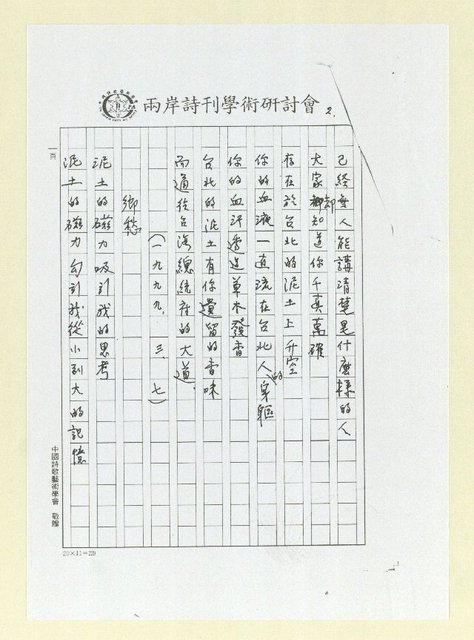 兩岸詩刊學術研討會
2.
已經無人能講清楚是什麼樣的人
大家都知道你千真萬確
存在於台北的泥土上升空
你的血液一直流在台北人的身軀
你的血汗透過草木發香
台北的泥土有你遺留的香味
而通往台灣總統府的大道
(一九九九、三、七)
鄉愁
泥土的磁力吸引我的思考
泥土的磁力勾引我從小到大的記憶
頁
中國詩歌藝術學會 敬贈
20×11=220